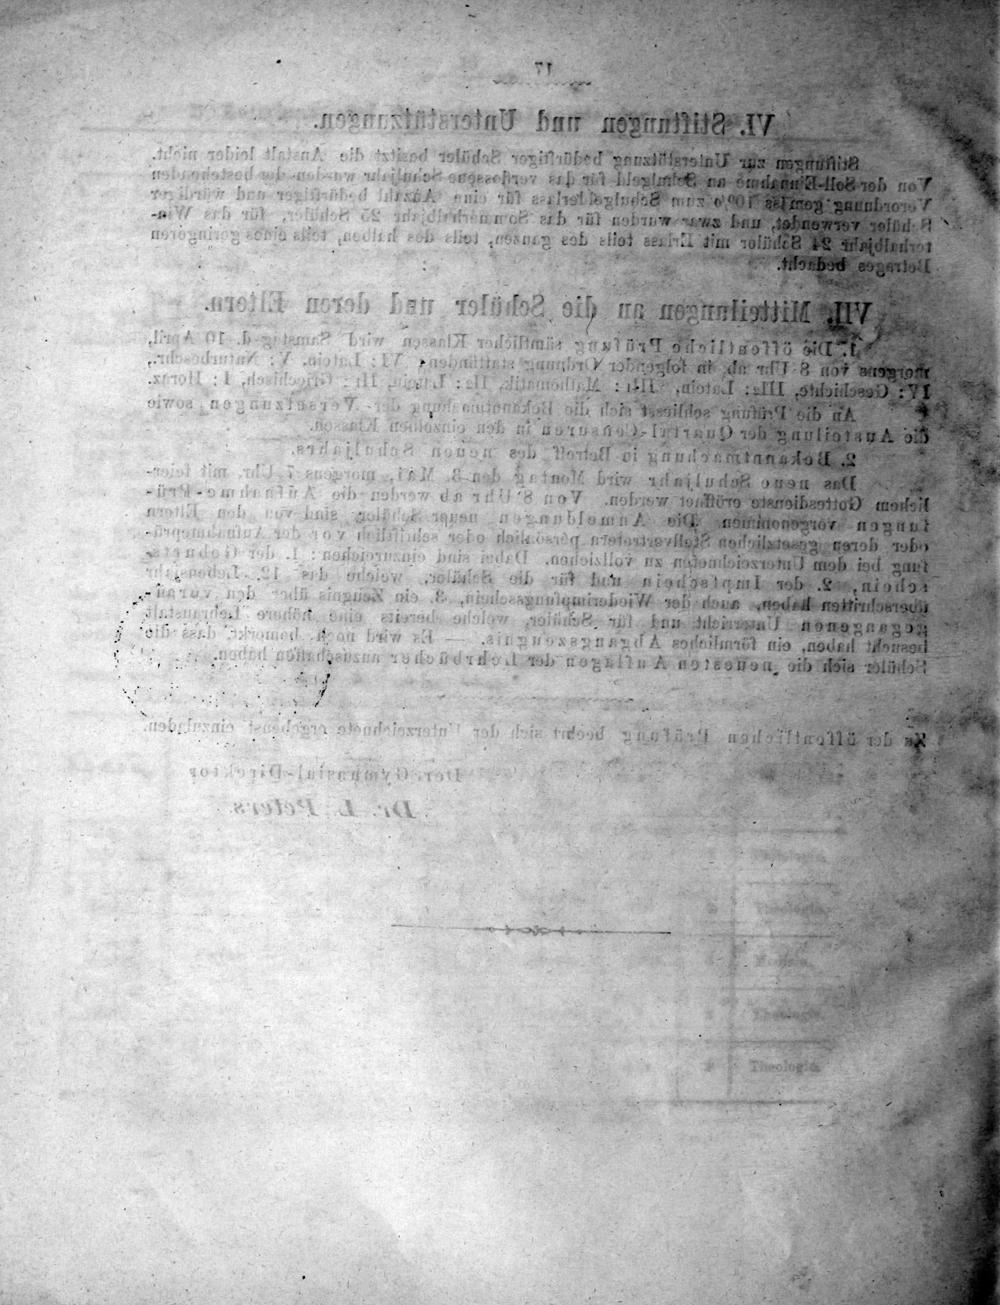 17
VI. Stiftungen und Unterstützungen.
Stiftungen zur Unterstützung bedürftiger Schüler besitzt die Anstalt leider nicht.
Von der Soll-Einnahme an Schulgeld für das verflossene Schuljahr wurden der bestehenden
Verordnung gemäss 10% zum Schulgelderlass für eine Anzahl bedürftiger und würdiger
Schüler verwendet, und zwar wurden für das Sommerhalbjahr 25 Schüler, für das Win-
terhalbjahr 24 Schüler mit Erlass teils des ganzen, teils des halben, teils eines geringeren
Betrages bedacht.
VII. Mitteilungen an die Schüler und deren Eltern.
1. Die öffentliche Prüfung sämtlicher Klassen wird Samstag d. 10 April,
morgens von 8 Uhr ab, in folgender Ordnung stattfinden: VI: Latein. V: Naturbeschr.,
IV: Geschichte, IIIa: Latein, Mathematik, IIa: Latein, Griechisch, I: Horaz.
An die Prüfung schliesst sich die Bekanntmachung der Versetzungen sowie
die Austeilung der Quartal-Censuren in den einzelnen Klassen.
2. Bekanntmachung in Betreff des neuen Schuljahrs.
Das neue Schuljahr wird Montag den 3. Mai, morgens 7 Uhr, mit feier-
lichem Gottesdienste eröffnet werden. Von 8 Uhr ab werden die Aufnahme-Prü-
fungen vorgenommen. Die Anmeldungen neuer Schüler sind von den Eltern
oder deren gesetzlichen Stellvertretern persönlich oder schriftlich vor der Aufnahmeprü-
fung bei dem Unterzeichneten zu vollziehen. Dabei sind einzureichen: 1. der Geburts-
schein, 2. der Impfschein und für die Schüler, welche das 12. Lebensjahr
überschritten haben, auch der Wiederimpfungsschein, 3. ein Zeugnis über den voran-
gegangenen Unterricht und für Schüler, welche bereits eine höhere Lehranstalt
besucht haben, ein förmliches Abgangszeugnis. — Es wird noch bemerkt, dass die
Schüler sich die neuesten Auflagen der Lehrbücher anzuschaffen haben.
Zu der öffentlichen Prüfung beehrt sich der Unterzeichnete ergebenst einzuladen.
Der Gymnasial-Direktor
Dr. L. Peters.
Theologie.
Theologie.
Theologie.
Theologie.